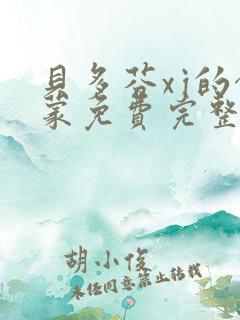 貝多芬xj的
蒙免費完整
胡小俊
未任同意禁止转载